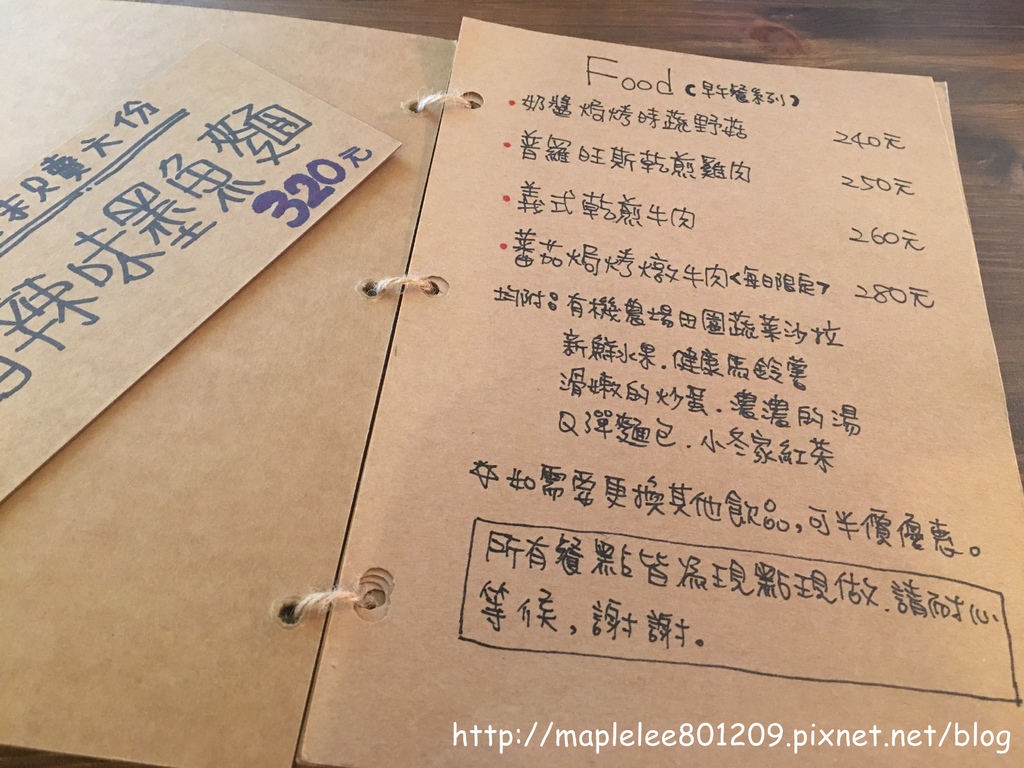 只賣六份
辣味墨魚麵
320元
Food (早午餐系列)
奶醬焗烤時蔬野菇 240元
普羅旺斯乾煎雞肉 250元
義式乾煎牛肉 260元
蕃茄焗烤燉牛肉<每日限定> 280元
均附:有機農場田園蔬菜沙拉
新鮮水果.健康馬鈴薯
滑嫩的炒蛋.濃濃的湯
Q彈麵包.小冬家紅茶
如需要更換其他飲品,可半價優惠。
所有餐點皆為現點現做.請耐心
等候,謝謝。
http://maplelee801209.pixnet.net/blog